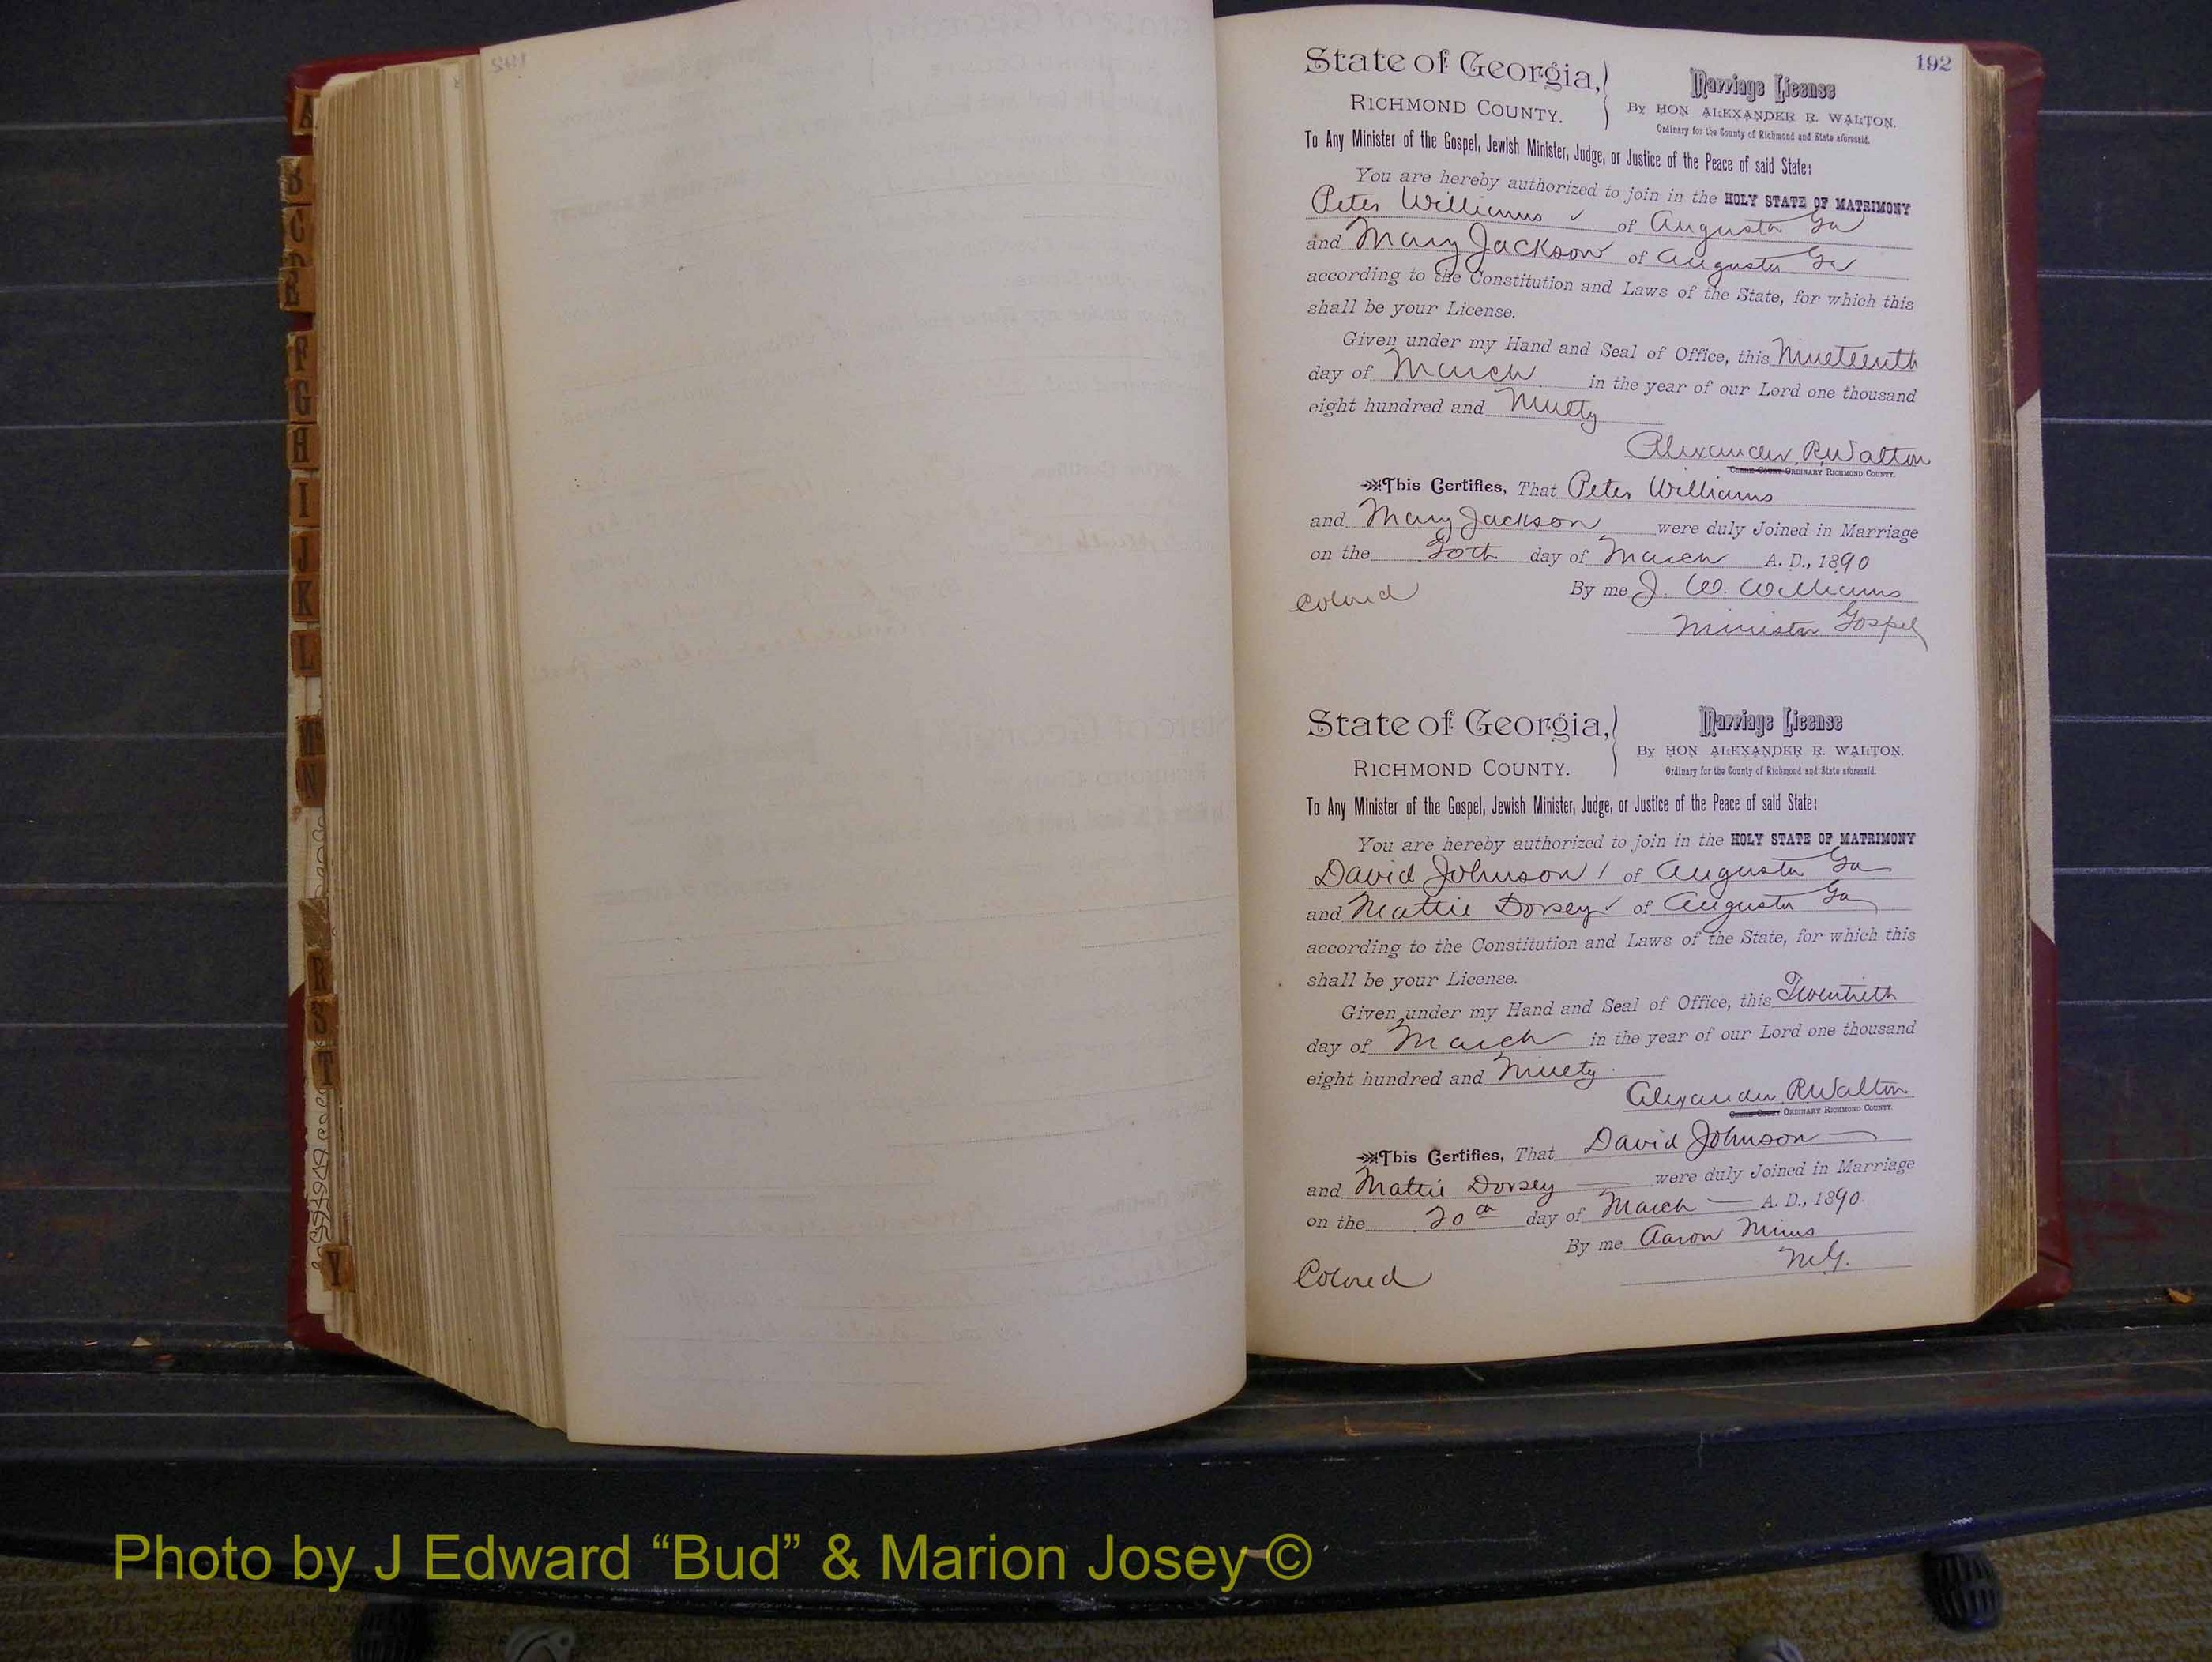 192
State of Georgia,
RICHMOND COUNTY.
Marriage License
By HON ALEXANDER R. WALTON.
Ordinary for the County of Richmond and State aforesaid.
To Any Minister of the Gospel, Jewish Minister, Judge, or Justice of the Peace of said State:
You are hereby authorized to join in the HOLY STATE OF MATRIMONY
Peter Williams of Augusta Ga
and Mary Jackson of Augusta Ga
according to the Constitution and Laws of the State, for which this
shall be your License.
Given under my Hand and Seal of Office, this Nineteenth
day of March in the year of our Lord one thousand
eight hundred and Ninety
Alexander R Walton
CLERK COURT ORDINARY RICHMOND COUNTY.
This Certifies, That Peter Williams
and Mary Jackson were duly Joined in Marriage
on the 20th day of March A. D., 1890
By me J. W. Williams
Colored
Minister Gospel
State of Georgia,
RICHMOND COUNTY.
Marriage License
By HON ALEXANDER R. WALTON.
Ordinary for the County of Richmond and State aforesaid.
To Any Minister of the Gospel, Jewish Minister, Judge, or Justice of the Peace of said State:
You are hereby authorized to join in the HOLY STATE OF MATRIMONY
David Johnson of Augusta Ga
and Mattie Dorsey of Augusta Ga
according to the Constitution and Laws of the State, for which this
shall be your License.
Given under my Hand and Seal of Office, this Twentieth
day of March in the year of our Lord one thousand
eight hundred and Ninety.
Alexander R Walton
CLERK COURT ORDINARY RICHMOND COUNTY.
This Certifies, That David Johnson
and Mattie Dorsey were duly Joined in Marriage
on the 20th day of March A. D., 1890
By me Aaron Mims
M.G.
Colored
A
B
C
D
E
F
G
H
I
J
K
L
N
R
S
T
Y
Photo by J Edward “Bud” & Marion Josey ©